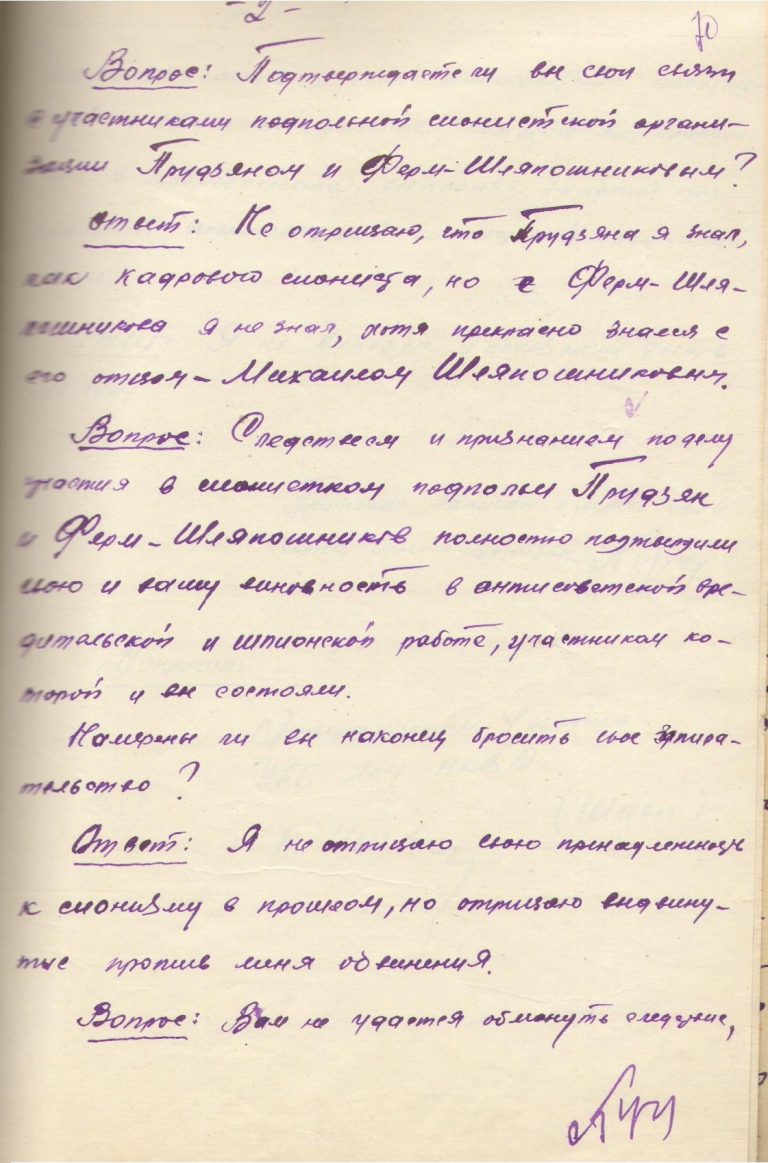 - 2 -
70
Вопрос: Подтверждаете ли вы свои связи
с участниками подпольной сионистской органи-
зации Прудзяном и Ферм-Шляпошниковым?
Ответ: Не отрицаю, что Прудзяна я знал,
как кадрового сиониста, но с Ферм-Шля-
пошникова я не знал, хотя прекрасно знался с
его отцом - Михаилом Шляпошниковым.
Вопрос: Следствием и признанием по делу
участия в сионистком подпольи Прудзян
и Ферм-Шляпошников полностью подтвердили
свою и вашу виновность в антисоветской вре-
дительской и шпионской работе, участником ко-
торой и вы состояли.
Намерены ли вы наконец бросить свое запира-
тельство?
Ответ: Я не отрицаю свою принадлежность
к сионизму в прошлом, но отрицаю выдвину-
тые против меня обвинения.
Вопрос: Вам не удастся обмануть следствие,